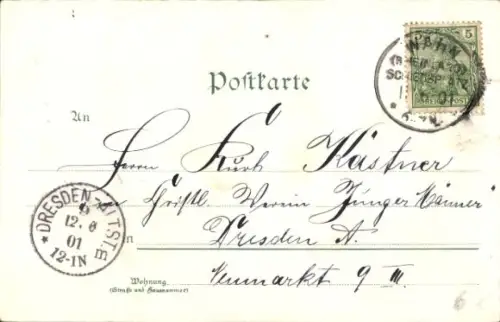 5
WAHN
SCHIESSPLATZ
Postkarte
An
Herrn Kurt Kästner
Christl. Verein Junger Männer
in Dresden A.
Neumarkt 9 III.
Wohnung
(Straße und Hausnummer)
DRESDEN-ALTST.
12. 6
01
12-1N
6